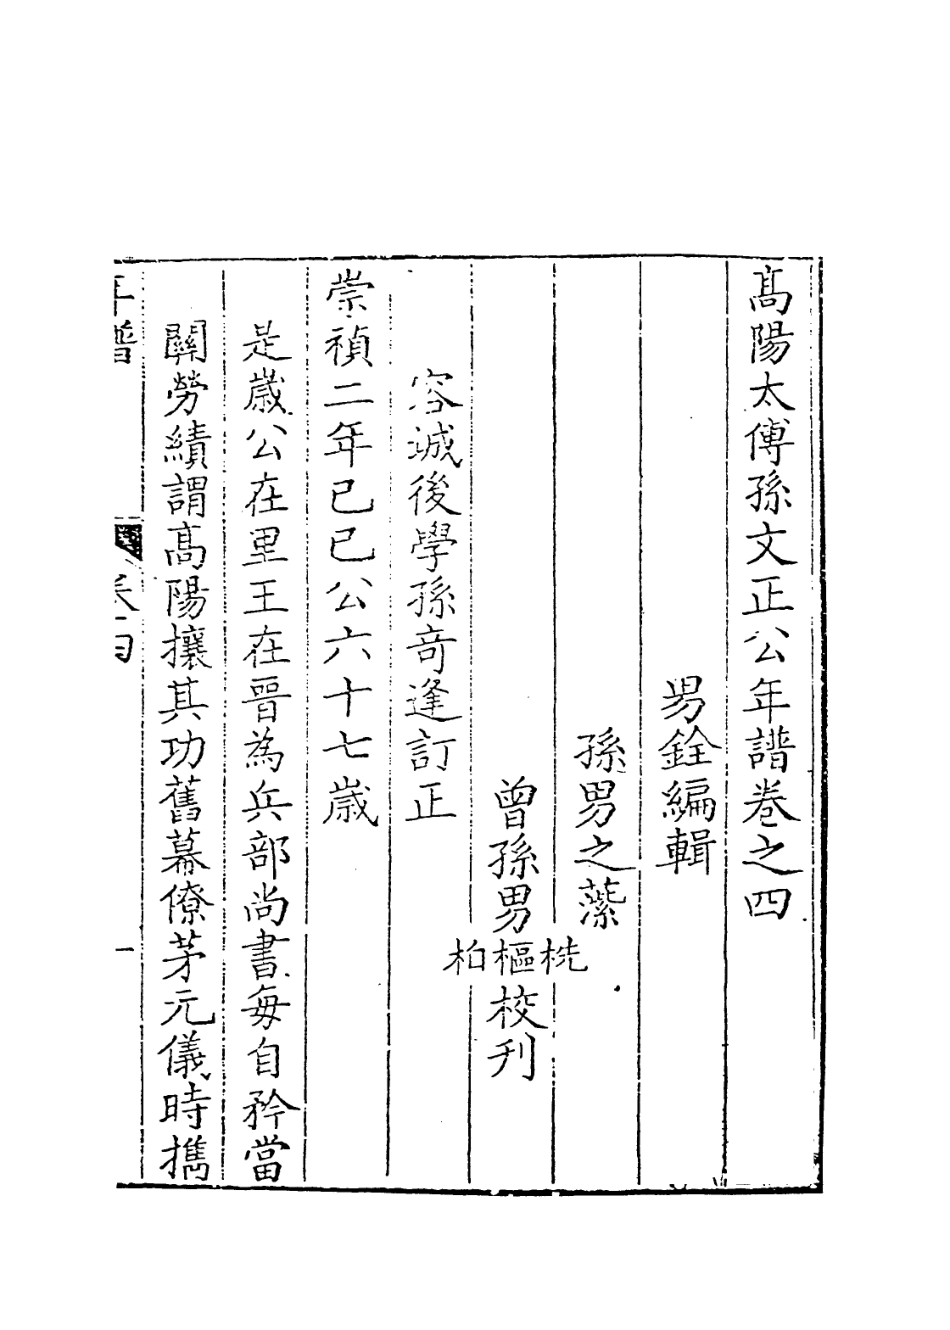 髙陽太傅孫文正公年譜卷之四
男銓編輯
孫男之藻
曾孫男桄樞柏校刋
容城後學孫竒逢訂正
崇禎二年己巳公六十七歲
是歲公在里王在晉為兵部尚書每自矜當
關勞績謂髙陽攘其功舊幕僚茅元儀時攜
年譜
卷四
一